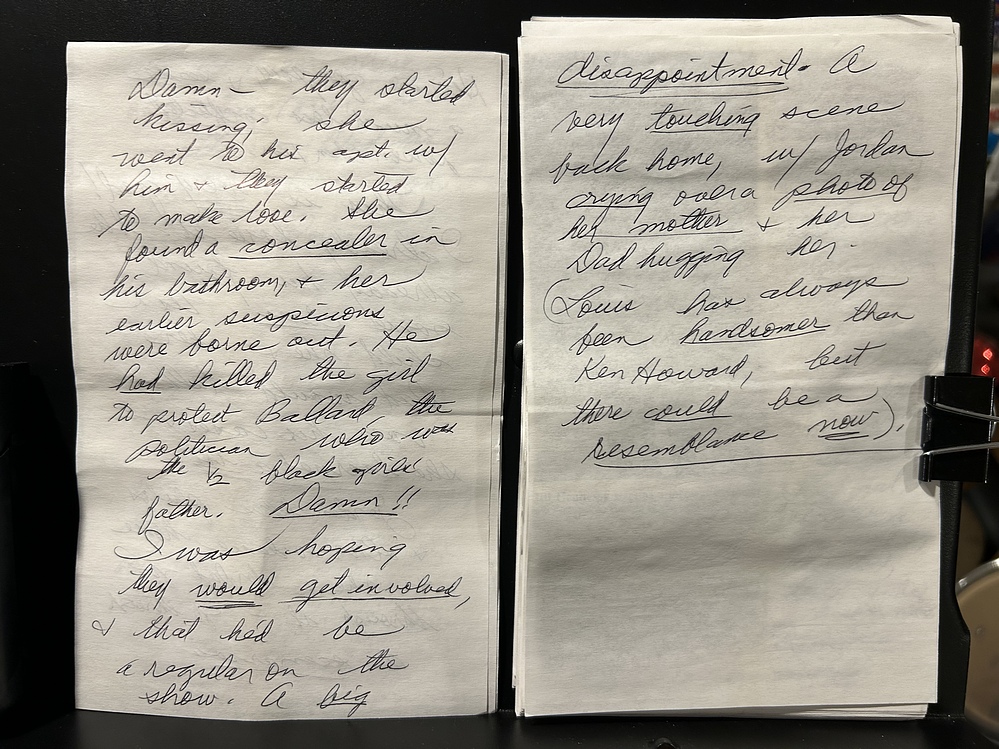 Damn – they started
kissing; she
went to his apt. w/
him + they started
to make love. She
found a concealer in
his bathroom, + her
earlier suspicions
were borne out. He
had killed the girl
to protect Ballard, the
politician who was
the ½ black girls'
father. Damn!!
I was hoping
they would get involved,
& that he'd be
a regular on the
show. A big
disappointment. A
very touching scene
back home, w/ Jordan
crying over a photo of
her mother & her
Dad hugging her.
(Louis has always
been handsomer than
Ken Howard, but
there could be a
resemblance now).